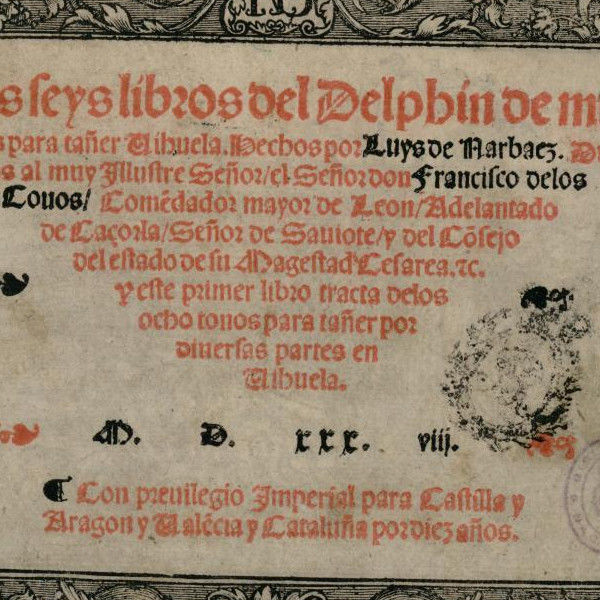 s seys libros del Delphin de mu
s para tañer Uihuela. Hechos por Luys de Narbaez. D
os al muy Illustre Señor/el Señor don Francisco delos
Couos/ Comẽdador mayor de Leon/Adelantado
de Caçorla/Señor de Sauiote/y del Cõsejo
del estado de su Magestad Cesarea. ⁊c.
y este primer libro tracta delos
ocho tonos para tañer por
diuersas partes en
Uihuela.
M. D. xxx. viij.
¶ Con preuilegio Imperial para Castilla y
Aragon y Valẽcia y Cataluña por diez años.